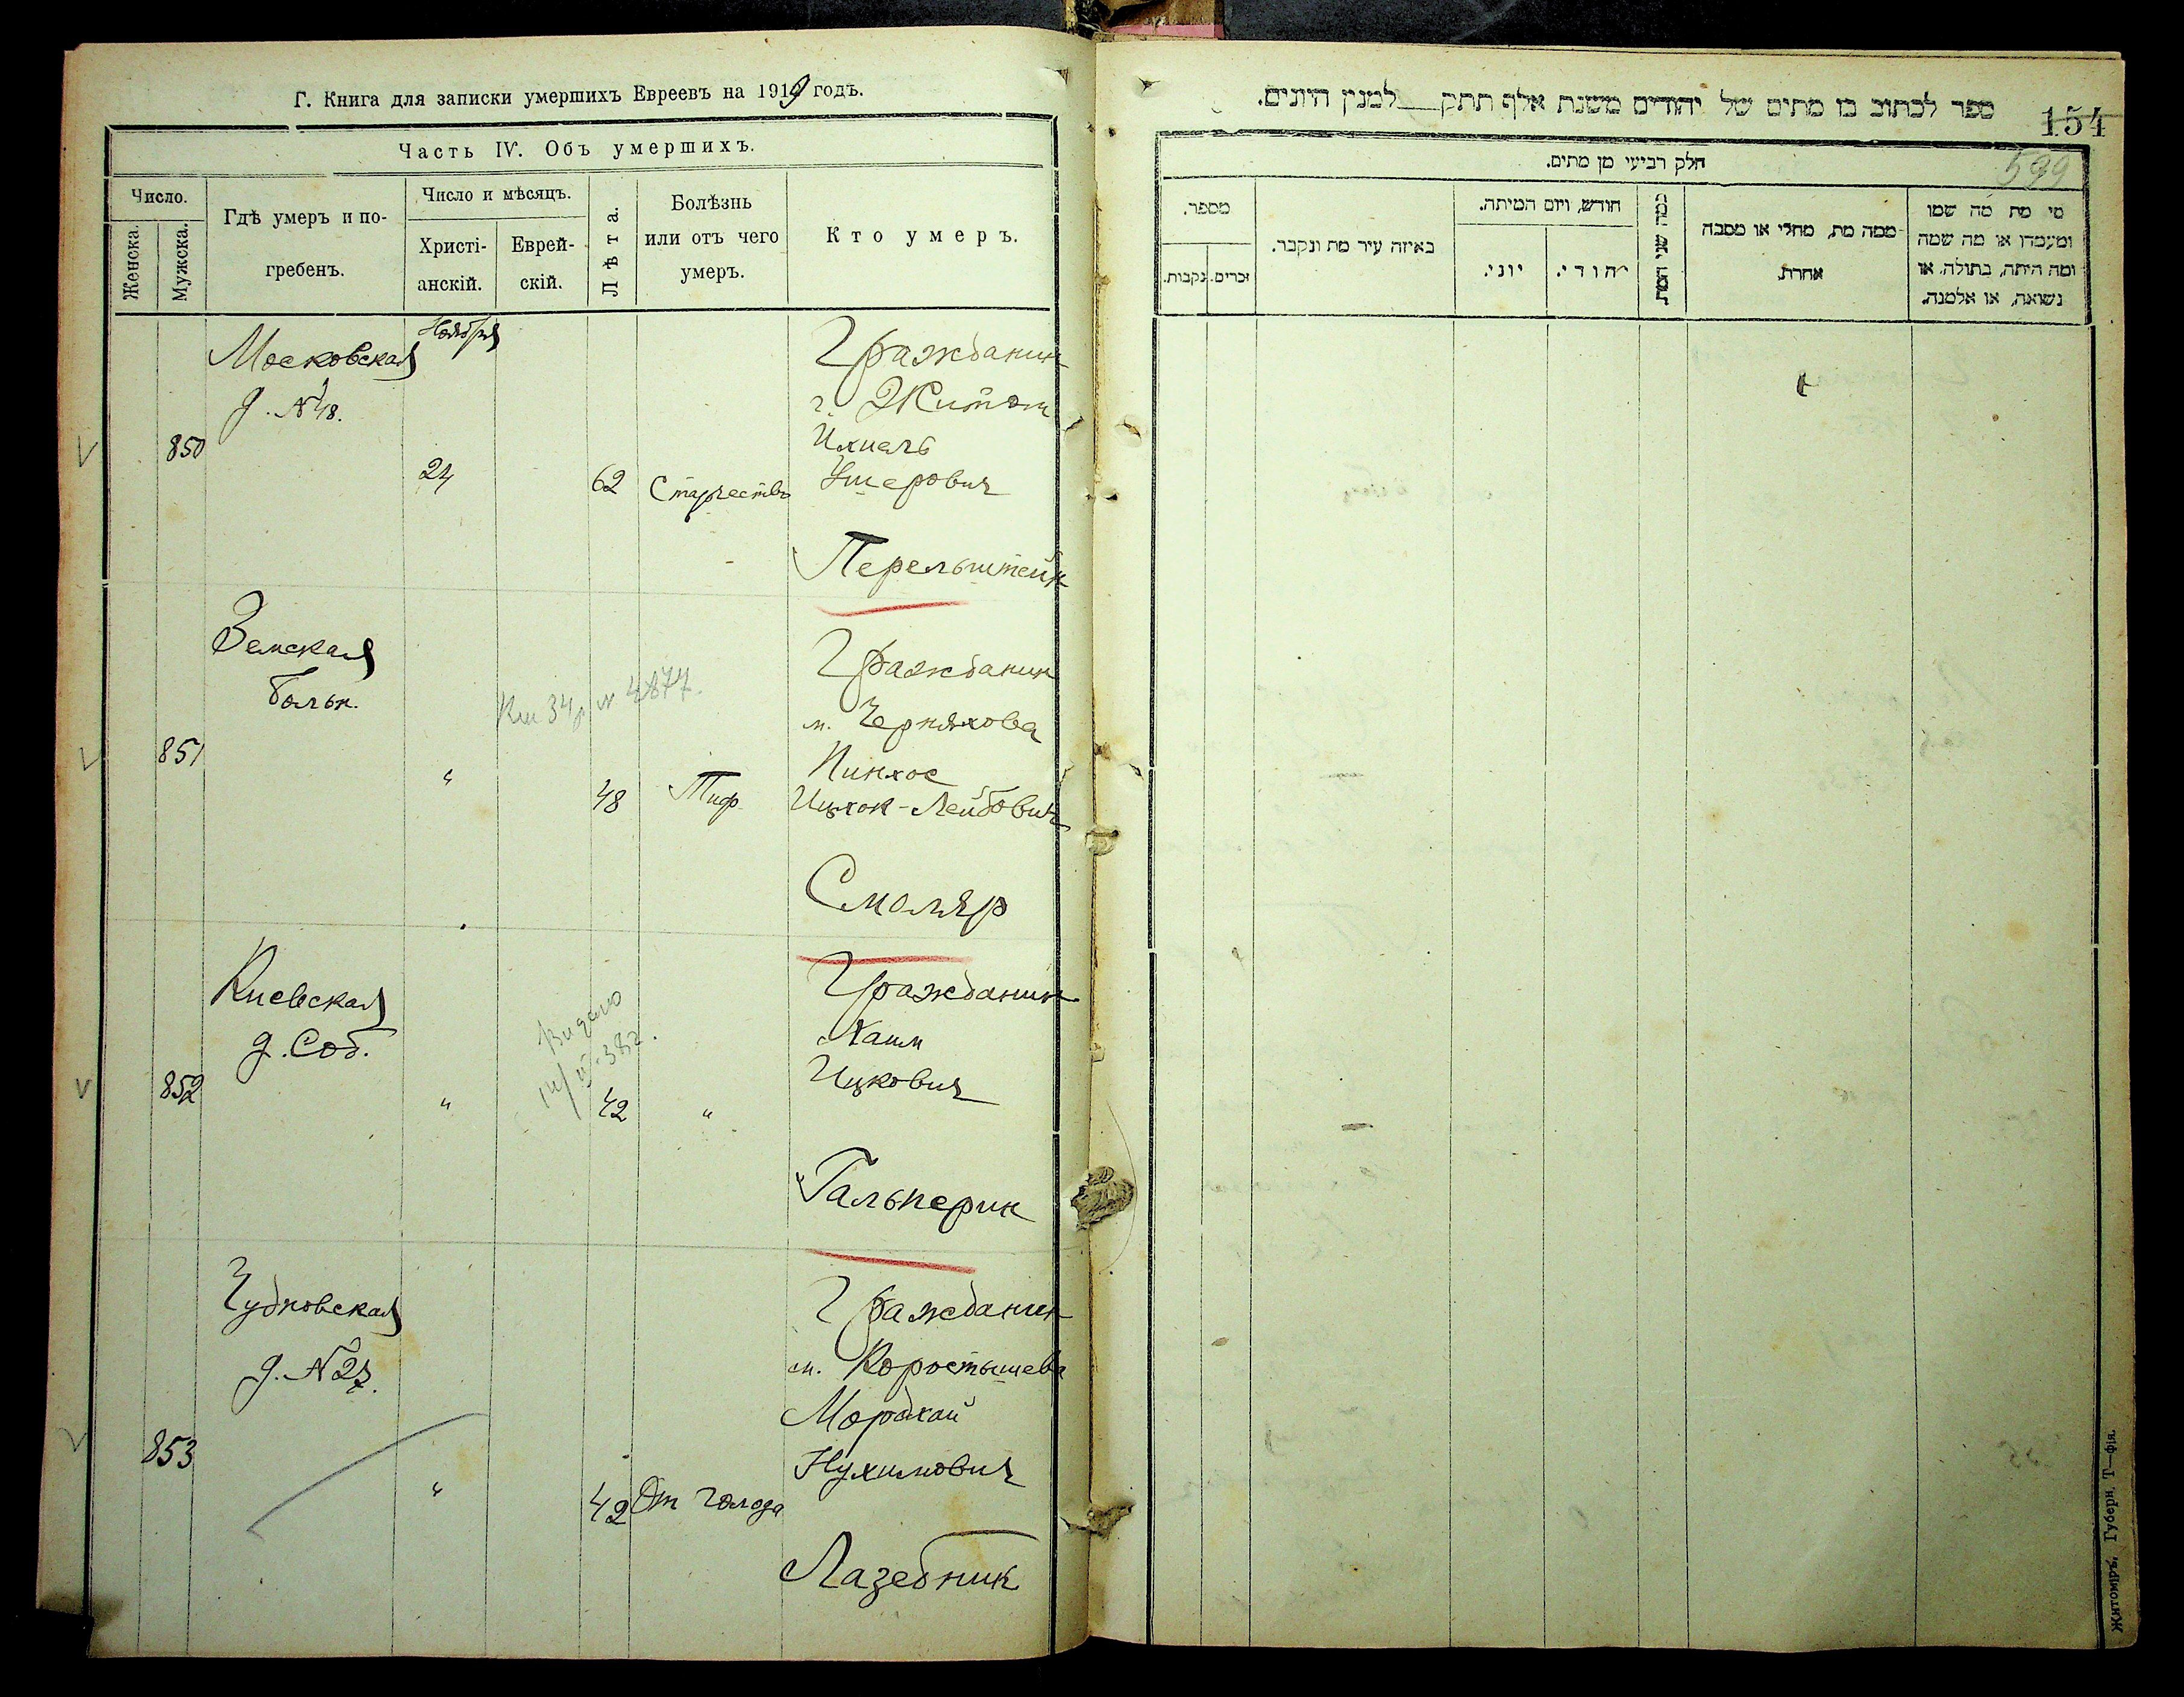 Г. Книга для записки умершихъ Евреевъ на 1919 годъ.
Часть IV. Объ умершихъ.
Число.
Женска.
Мужска.
Гдѣ умеръ и по-
гребенъ.
Число и мѣсяцъ.
Христі-
анскій.
Еврей-
скій.
Лѣта.
Болѣзнь
или отъ чего
умеръ.
Кто умеръ.
Московская
д. № 48.
Ноября
850
24
62
Старчество
Гражданин
г. Житом
Ихиель
Ушерович
Перельштейн
Земская
больн.
№ 4877.
851
"
48
Тиф
Гражданин
м. Черняхова
Пинхос
Ицхок-Лейбович
Смоляр
Киевская
д. Соб.
Видано
852
"
42
"
Гражданин
Хаим
Ицкович
Гальперин
Чудновская
д. № 27.
853
"
42
От голода
Гражданин
м. Коростышева
Мордхай
Нухимович
Лазебник
ספר לכתוב בו מתים של יהודים משנת אלף תתק למנין היונים.
154
599
חלק רביעי מן מתים.
מספר.
נקבות.
זכרים.
באיזה עיר מת ונקבר.
חודש, ויום המיתה.
יוני.
יהודי.
כמה שני המת.
ממה מת, מחלי או מסבה
אחרת.
מי מת מה שמו
ומעמדו או מה שמה
ומה היתה, בתולה, או
נשואה, או אלמנה.
Житоміръ, Губерн. Т—фія.